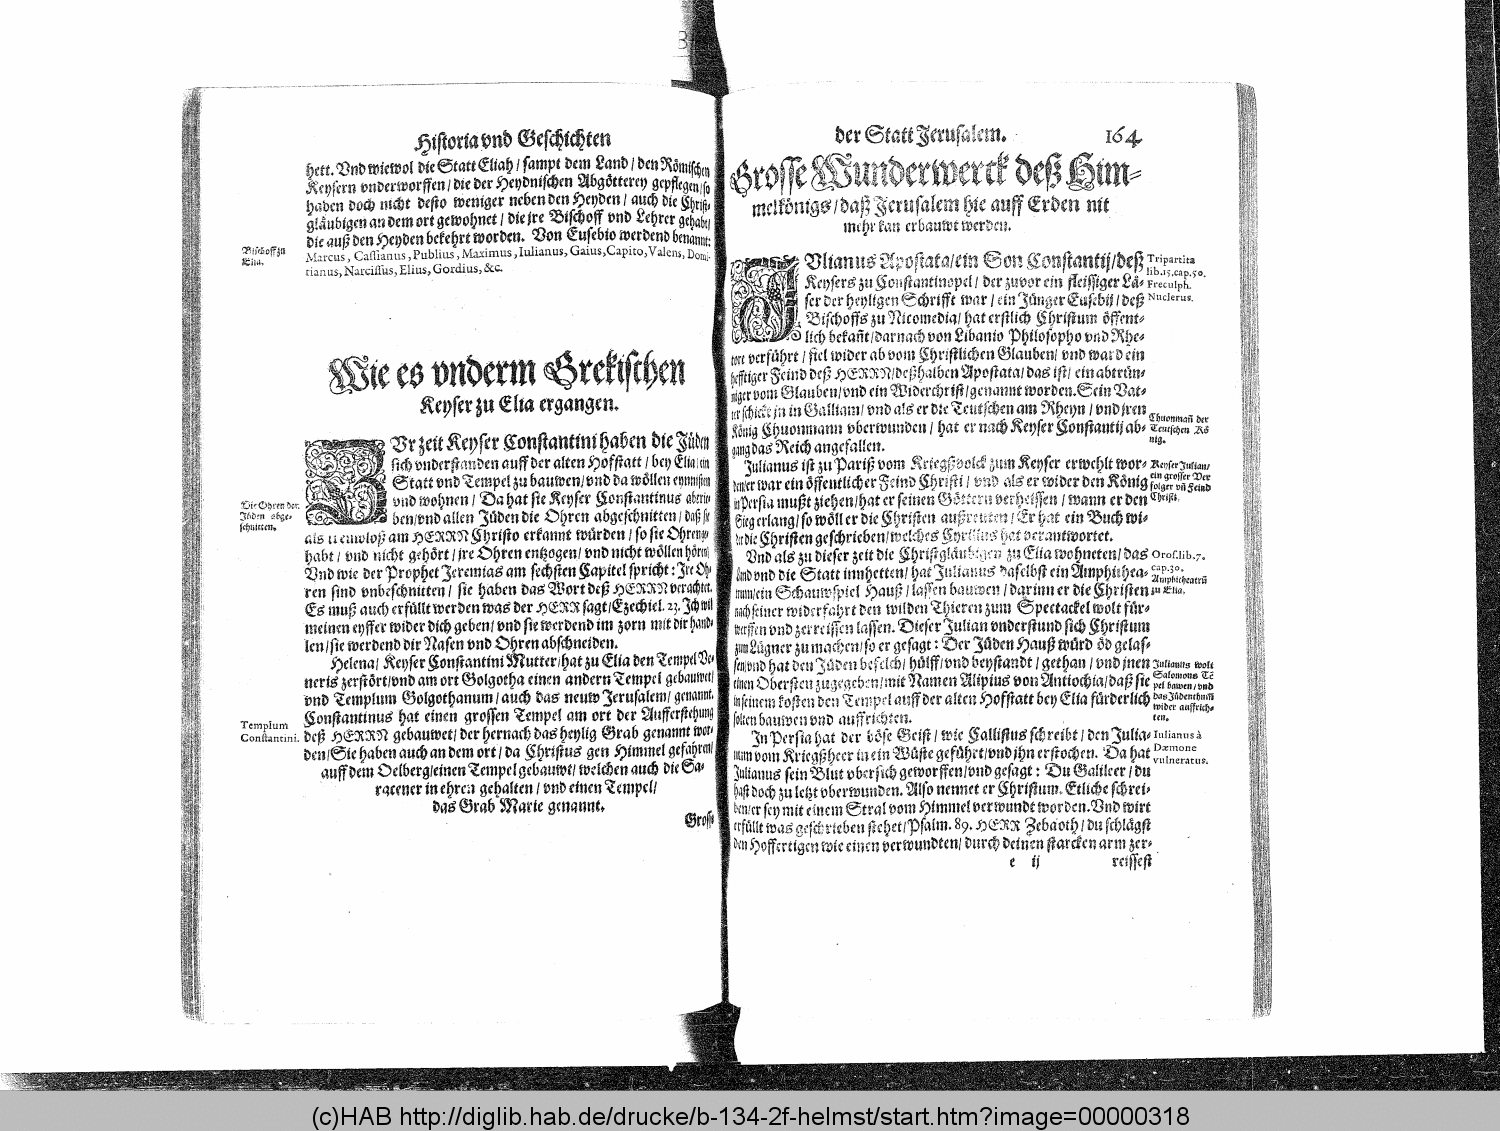 Historia vnd Geschichten
hett. Vnd wiewol die Statt Eliah / sampt dem Land / den Römischen
Keysern vnderworffen / die der Heydnischen Abgötterey gepflegen / so
haben doch nicht desto weniger neben den Heyden / auch die Christ-
gläubigen an dem ort gewohnet / die jre Bischoff vnd Lehrer gehabt /
die auß den Heyden bekehrt worden. Von Eusebio werdend benannt:
Marcus, Cassianus, Publius, Maximus, Iulianus, Gaius, Capito, Valens, Domi-
tianus, Narcissus, Elius, Gordius, &c.
Bischoff zu
Elia.
Wie es vnderm Grekischen
Keyser zu Elia ergangen.
ZVr zeit Keyser Constantini haben die Jüden
sich vnderstanden auff der alten Hofstatt / bey Elia / ein
Statt vnd Tempel zu bauwen / vnd da wöllen eynnisten
vnd wohnen / Da hat sie Keyser Constantinus
ben / vnd allen Jüden die Ohren abgeschnitten / daß sie
als am HERRN Christo erkannt würden / so sie Ohren
habt / vnd nicht gehört / jre Ohren entzogen / vnd nicht wöllen hören /
Vnd wie der Prophet Jeremias am sechsten Capitel spricht: Jre Oh-
ren sind vnbeschnitten / sie haben das Wort deß HERRN verachtet.
Es muß auch erfüllt werden was der HERR sagt / Ezechiel. 23. Ich wil
meinen eyffer wider dich geben / vnd sie werdend im zorn mit dir hand-
len / sie werdend dir Nasen vnd Ohren abschneiden.
Die Ohren der
Jüden abge-
schnitten.
Helena / Keyser Constantini Mutter / hat zu Elia den Tempel Ve-
neris zerstört / vnd am ort Golgotha einen andern Tempel gebauwet /
vnd Templum Golgothanum / auch das neuw Jerusalem / genannt.
Constantinus hat einen grossen Tempel am ort der Aufferstehung
deß HERRN gebauwet / der hernach das heylig Grab genannt wor-
den / Sie haben auch an dem ort / da Christus gen Himmel gefahren /
auff dem Oelberg / einen Tempel gebauwt / welchen auch die Sa-
racener in ehren gehalten / vnd einen Tempel /
das Grab Marie genannt.
Templum
Constantini.
Grosse
der Statt Jerusalem. 164
Grosse Wunderwerck deß Him-
melkönigs / daß Jerusalem hie auff Erden nit
mehr kan erbauwt werden.
IVlianus Apostata / ein Son Constantij / deß
Keysers zu Constantinopel / der zuvor ein fleissiger Lä-
ser der heyligen Schrifft war / ein Jünger Eusebij / deß
Bischoffs zu Nicomedia / hat erstlich Christum öffent-
lich bekañt / darnach von Libanio Philosopho vnd Rhe-
tore verführt / fiel wider ab vom Christlichen Glauben / vnd ward ein
hefftiger Feind deß HERRN / deßhalben Apostata / das ist / ein abtrün-
niger vom Glauben / vnd ein Widerchrist / genannt worden. Sein Vat-
ter schickt jn in Galliam / vnd als er die Teutschen am Rheyn / vnd jren
König Chuonmann vberwunden / hat er nach Keyser Constantij ab-
gang das Reich angefallen.
Tripartita
lib.15.cap.50.
Freculph.
Nuclerus.
Chuonmañ der
Teutschen Kö
nig.
Julianus ist zu Pariß vom Kriegßvolck zum Keyser erwehlt wor-
den / er war ein öffentlicher Feind Christi / vnd als er wider den König
in Persia mußt ziehen / hat er seinen Göttern verheissen / wann er den
Sieg erlang / so wöll er die Christen außreuten / Er hat ein Buch wi-
der die Christen geschrieben / welches Cyrillus hat verantwortet.
Keyser Julian /
ein grosser Ver
folger vñ Feind
Christi.
Vnd als zu dieser zeit die Christgläubigen zu Elia wohneten / das
Land vnd die Statt innhetten / hat Julianus daselbst ein Amphithea-
trum / ein Schauwspiel Hauß / lassen bauwen / darinn er die Christen
nach seiner widerfahrt den wilden Thieren zum Spectackel wolt für-
werffen vnd zerreissen lassen. Dieser Julian vnderstund sich Christum
zum Lügner zu machen / so er gesagt: Der Jüden Hauß würd öd gelas-
sen / vnd hat den Jüden befelch / hülff / vnd beystandt / gethan / vnd jnen
einen Obersten zugegeben / mit Namen Alipius von Antiochia / daß sie
in seinem kosten den Tempel auff der alten Hofstatt bey Elia fürderlich
solten bauwen vnd auffrichten.
Oros.lib.7.
cap.30.
Amphitheatrũ
zu Elia.
Julianus wolt
Salomons Tẽ
pel bawen / vnd
das Jüdenthum
wider auffrich-
ten.
In Persia hat der böse Geist / wie Callistus schreibt / den Julia-
num vom Kriegßheer in ein Wüste geführt / vnd ihn erstochen. Da hat
Julianus sein Blut vbersich geworffen / vnd gesagt: Du Galileer / du
hast doch zu letzt vberwunden. Also nennet er Christum. Etliche schrei-
ben / er sey mit einem Stral vom Himmel verwundt worden. Vnd wirt
erfüllt was geschrieben stehet / Psalm. 89. HERR Zebaoth / du schlägst
den Hoffertigen wie einen verwundten / durch deinen starcken arm zer-
Iulianus à
Dæmone
vulneratus.
e ij reissest
(c)HAB http://diglib.hab.de/drucke/b-134-2f-helmst/start.htm?image=00000318